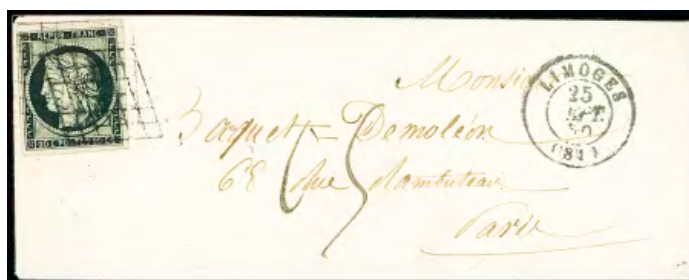 REPUB. FRANC.
LIMOGES
25
SEPT.
50
(81)
Monsie
Baquet-Demoléon
68 Rue Rambuteau
Paris